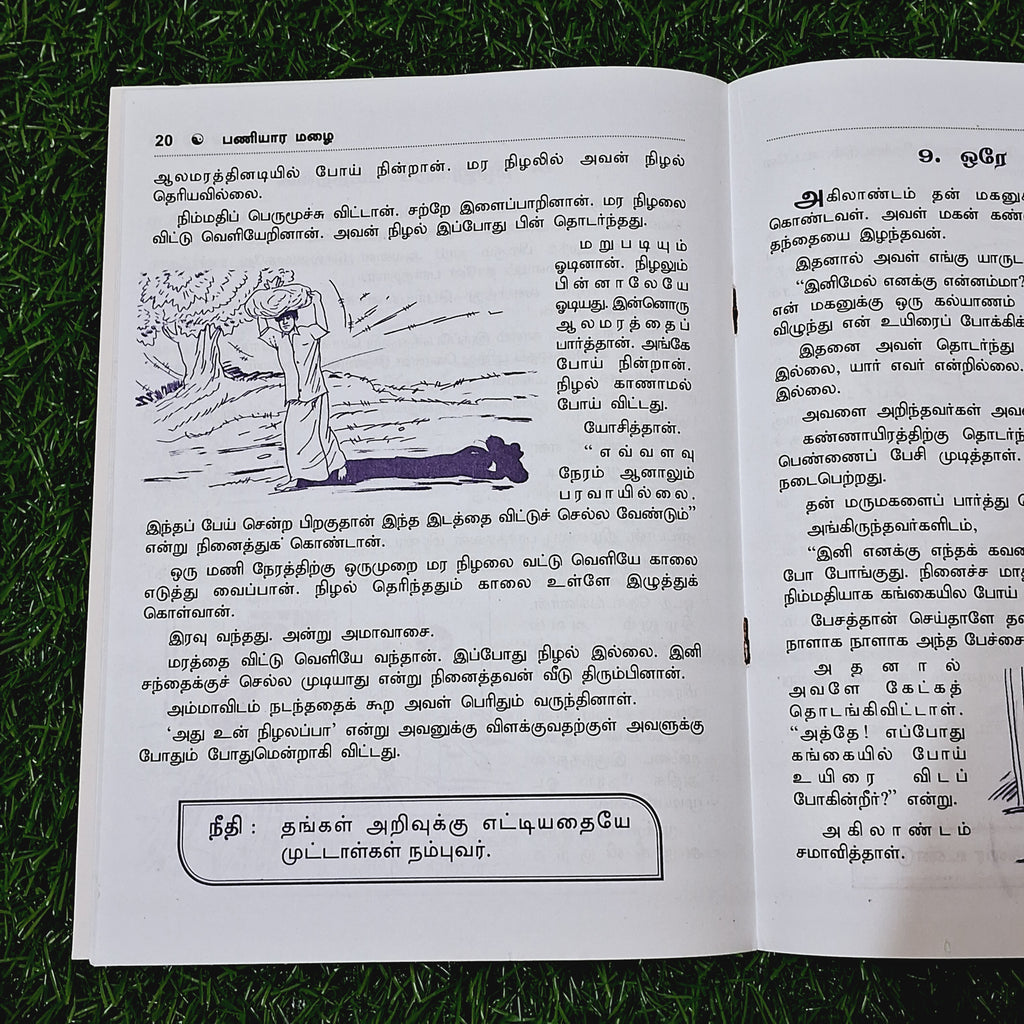 20 ☯ பணியார மழை
ஆலமரத்தினடியில் போய் நின்றான். மர நிழலில் அவன் நிழல்
தெரியவில்லை.
நிம்மதிப் பெருமூச்சு விட்டான். சற்றே இளைப்பாறினான். மர நிழலை
விட்டு வெளியேறினான். அவன் நிழல் இப்போது பின் தொடர்ந்தது.
மறுபடியும்
ஓடினான். நிழலும்
பின்னாலேயே
ஓடியது. இன்னொரு
ஆலமரத்தைப்
பார்த்தான். அங்கே
போய் நின்றான்.
நிழல் காணாமல்
போய் விட்டது.
யோசித்தான்.
“எவ்வளவு
நேரம் ஆனாலும்
பரவாயில்லை.
இந்தப் பேய் சென்ற பிறகுதான் இந்த இடத்தை விட்டுச் செல்ல வேண்டும்”
என்று நினைத்துக் கொண்டான்.
ஒரு மணி நேரத்திற்கு ஒருமுறை மர நிழலை வட்டு வெளியே காலை
எடுத்து வைப்பான். நிழல் தெரிந்ததும் காலை உள்ளே இழுத்துக்
கொள்வான்.
இரவு வந்தது. அன்று அமாவாசை.
மரத்தை விட்டு வெளியே வந்தான். இப்போது நிழல் இல்லை. இனி
சந்தைக்குச் செல்ல முடியாது என்று நினைத்தவன் வீடு திரும்பினான்.
அம்மாவிடம் நடந்ததைக் கூற அவள் பெரிதும் வருந்தினாள்.
‘அது உன் நிழலப்பா’ என்று அவனுக்கு விளக்குவதற்குள் அவளுக்கு
போதும் போதுமென்றாகி விட்டது.
நீதி : தங்கள் அறிவுக்கு எட்டியதையே
முட்டாள்கள் நம்புவர்.
9. ஒரே
அகிலாண்டம் தன்
கொண்டவள். அவள் மகன்
தந்தையை இழந்தவன்.
இதனால் அவள் எங்கு
“இனிமேல் எனக்கு என்னம்மா?
என் மகனுக்கு ஒரு கல்யாணம்
விழுந்து என் உயிரைப்
இதனை அவள் தொடர்ந்து
இல்லை, யார் எவர் என்றில்லை.
இல்லை.
அவளை அறிந்தவர்கள்
கண்ணாயிரத்திற்கு
பெண்ணைப் பேசி முடித்தாள்.
நடைபெற்றது.
தன் மருமகளைப் பார்த்து
அங்கிருந்தவர்களிடம்,
“இனி எனக்கு எந்தக்
போ போங்குது. நினைச்ச
நிம்மதியாக கங்கையில போய்
பேசத்தான் செய்தாளே
நாளாக நாளாக அந்த
அதனால்
அவளே கேட்கத்
தொடங்கிவிட்டாள்.
“அத்தே! எப்போது
கங்கையில் போய்
உயிரை விடப்
போகின்றீர்?” என்று.
அகிலாண்டம்
சமாவித்தாள்.